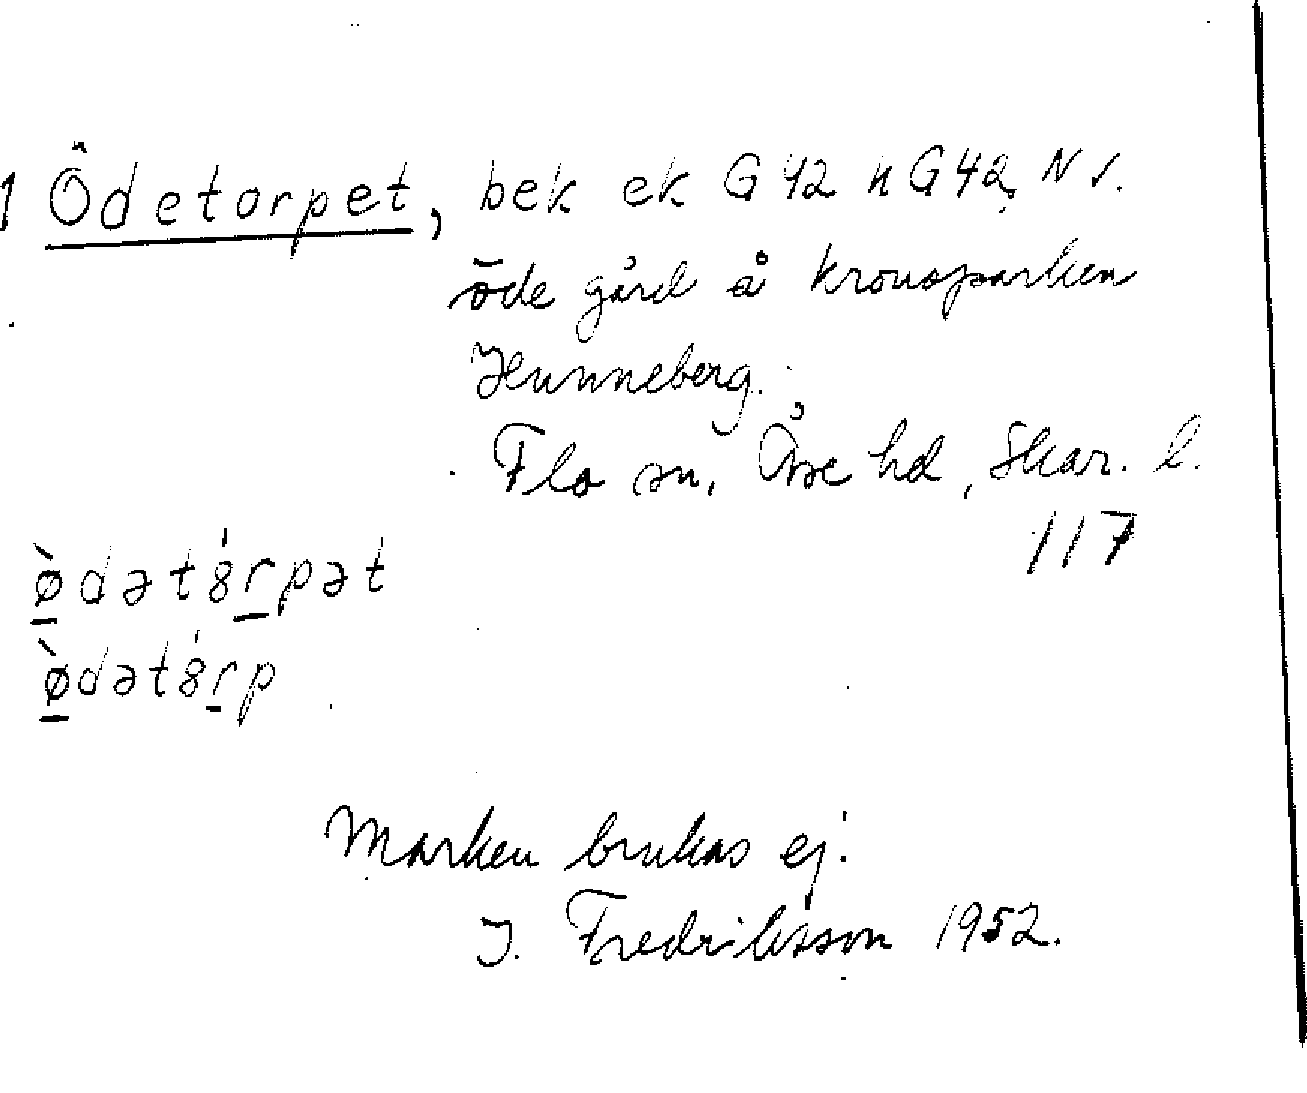 1 Ödetorpet, bek ek G42 n G42, N s.
öde gård å kronoparken
Hunneberg.
Flo sn, Åse hd, Skar. l.
117
ø̀dətȣ́rpət
ø̀dətȣ́rp
Marken brukas ej.
J. Fredriksson 1952.